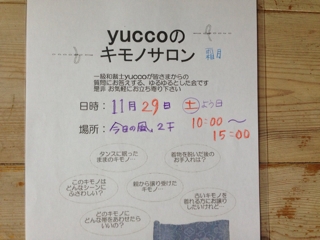 yuccoの
キモノサロン
一級和裁士yuccoが皆さまからの
質問にお答えする、ゆるゆるとした会です
是非 お気軽にお立ち寄り下さい
日時: 11月29日 土よう日
10:00〜
15:00
場所: 今日の風。2F
タンスに眠った
ままのキモノ…
着物を脱いだ後の
お手入れは?
このキモノは
どんなシーンに
ふさわしい?
親から譲り受けた
キモノ…
古いキモノを
どのキモノに
どんな帯をあわせたら
いいの?